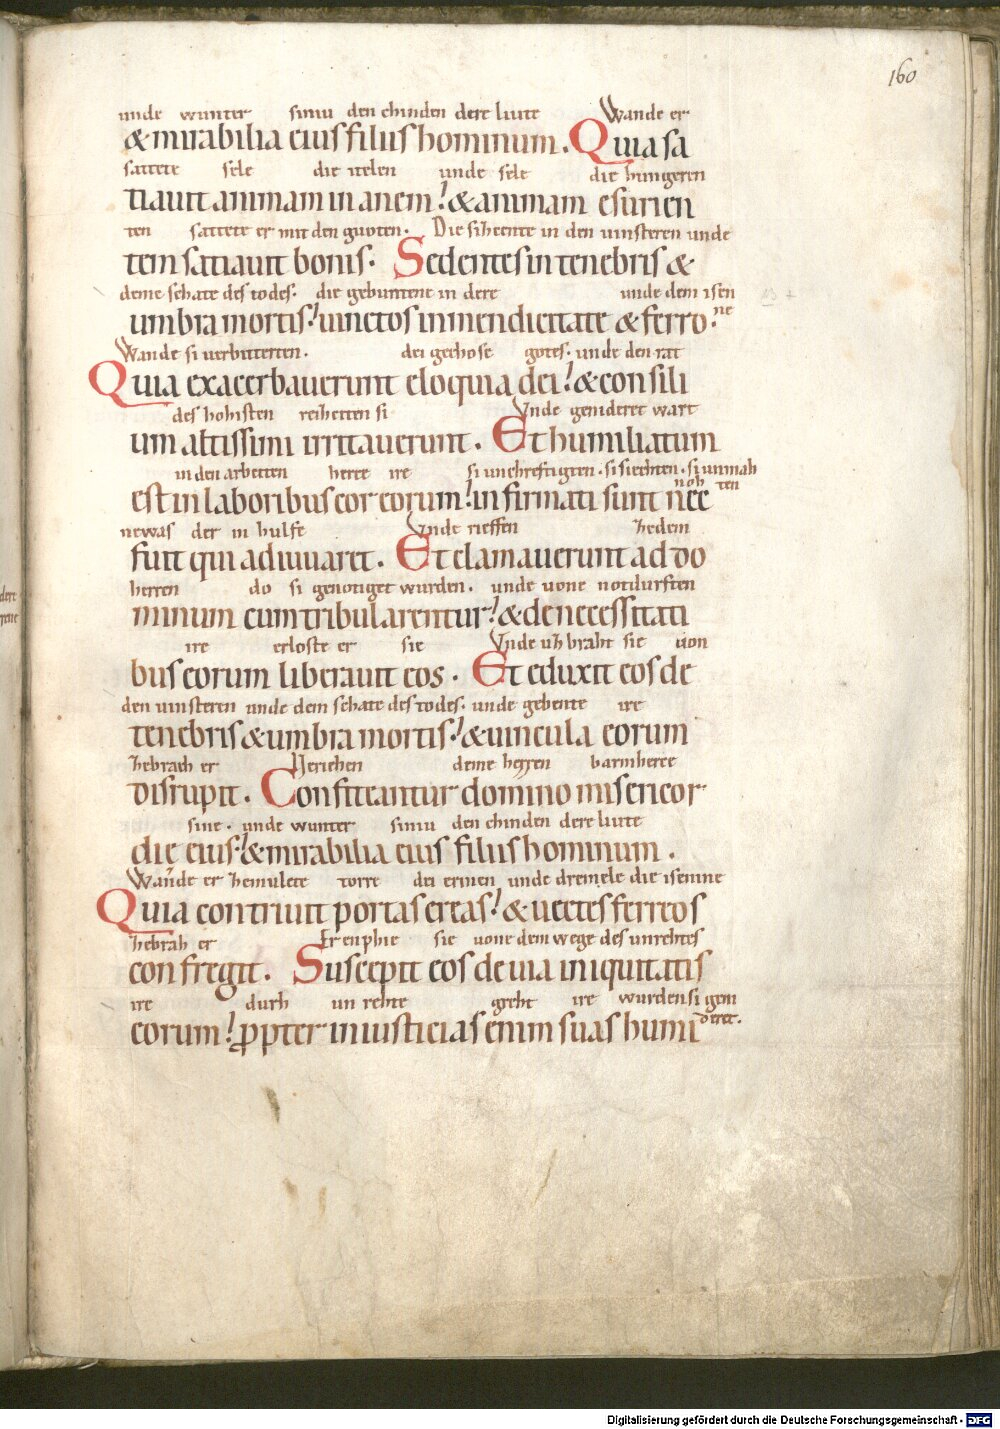 160
unde wunter siniu den chinden dere liute Wande er
& mirabilia eius filiis hominum. Quia sa
sattete sele die itelen unde sele die hungeren
tiauit animam inanem! & animam esurien
ten sattete er mit den guoten. Die siheente in den uinsteren unde
tem satiauit bonis. Sedentes in tenebris &
deme schate des todes. die gebuntene in dere unde dem isen
umbra mortis! uinctos in mendicitate & ferro. ne
Wande si uerbitterten. dei gechose gotes. unde den rat
Quia exacerbauerunt eloquia dei! & consili
des hohisten reihetten si Unde genideret wart
um altissimi irritauerunt. Et humiliatum
in den arbeiten herce ire si unchreftigten. si siechten. si unmah
est in laboribus cor eorum! infirmati sunt nec noh ten
newas der in hulfe Unde rieffen zedem
fuit qui adiuuaret. Et clamauerunt ad do
herren do si genotiget wurden. unde uone notdurften
minum cum tribularentur! & de necessitati
ire erloste er sie Unde uh braht sie uon
bus eorum liberauit eos. Et eduxit eos de
den uinsteren unde dem schate des todes. unde gebente ire
tenebris & umbra mortis! & uincula eorum
zebrach er Veriehen deme herren barmherce
disrupit. Confiteantur domino misericor
sine. unde wunter siniu den chinden dere liute
die eius! & mirabilia eius filiis hominum.
Wande er zemulete torre dei erinen unde dremele die iseinine
Quia contriuit portas ereas! & uectes ferreos
zebrah er Er enphie sie uone dem wege des unrehtes
confregit. Suscepit eos de uia iniquitatis
ire durh unrehte greht ire wurden si geni
eorum! propter iniusticias enim suas humi deret.
Digitalisierung gefördert durch die Deutsche Forschungsgemeinschaft - DFG